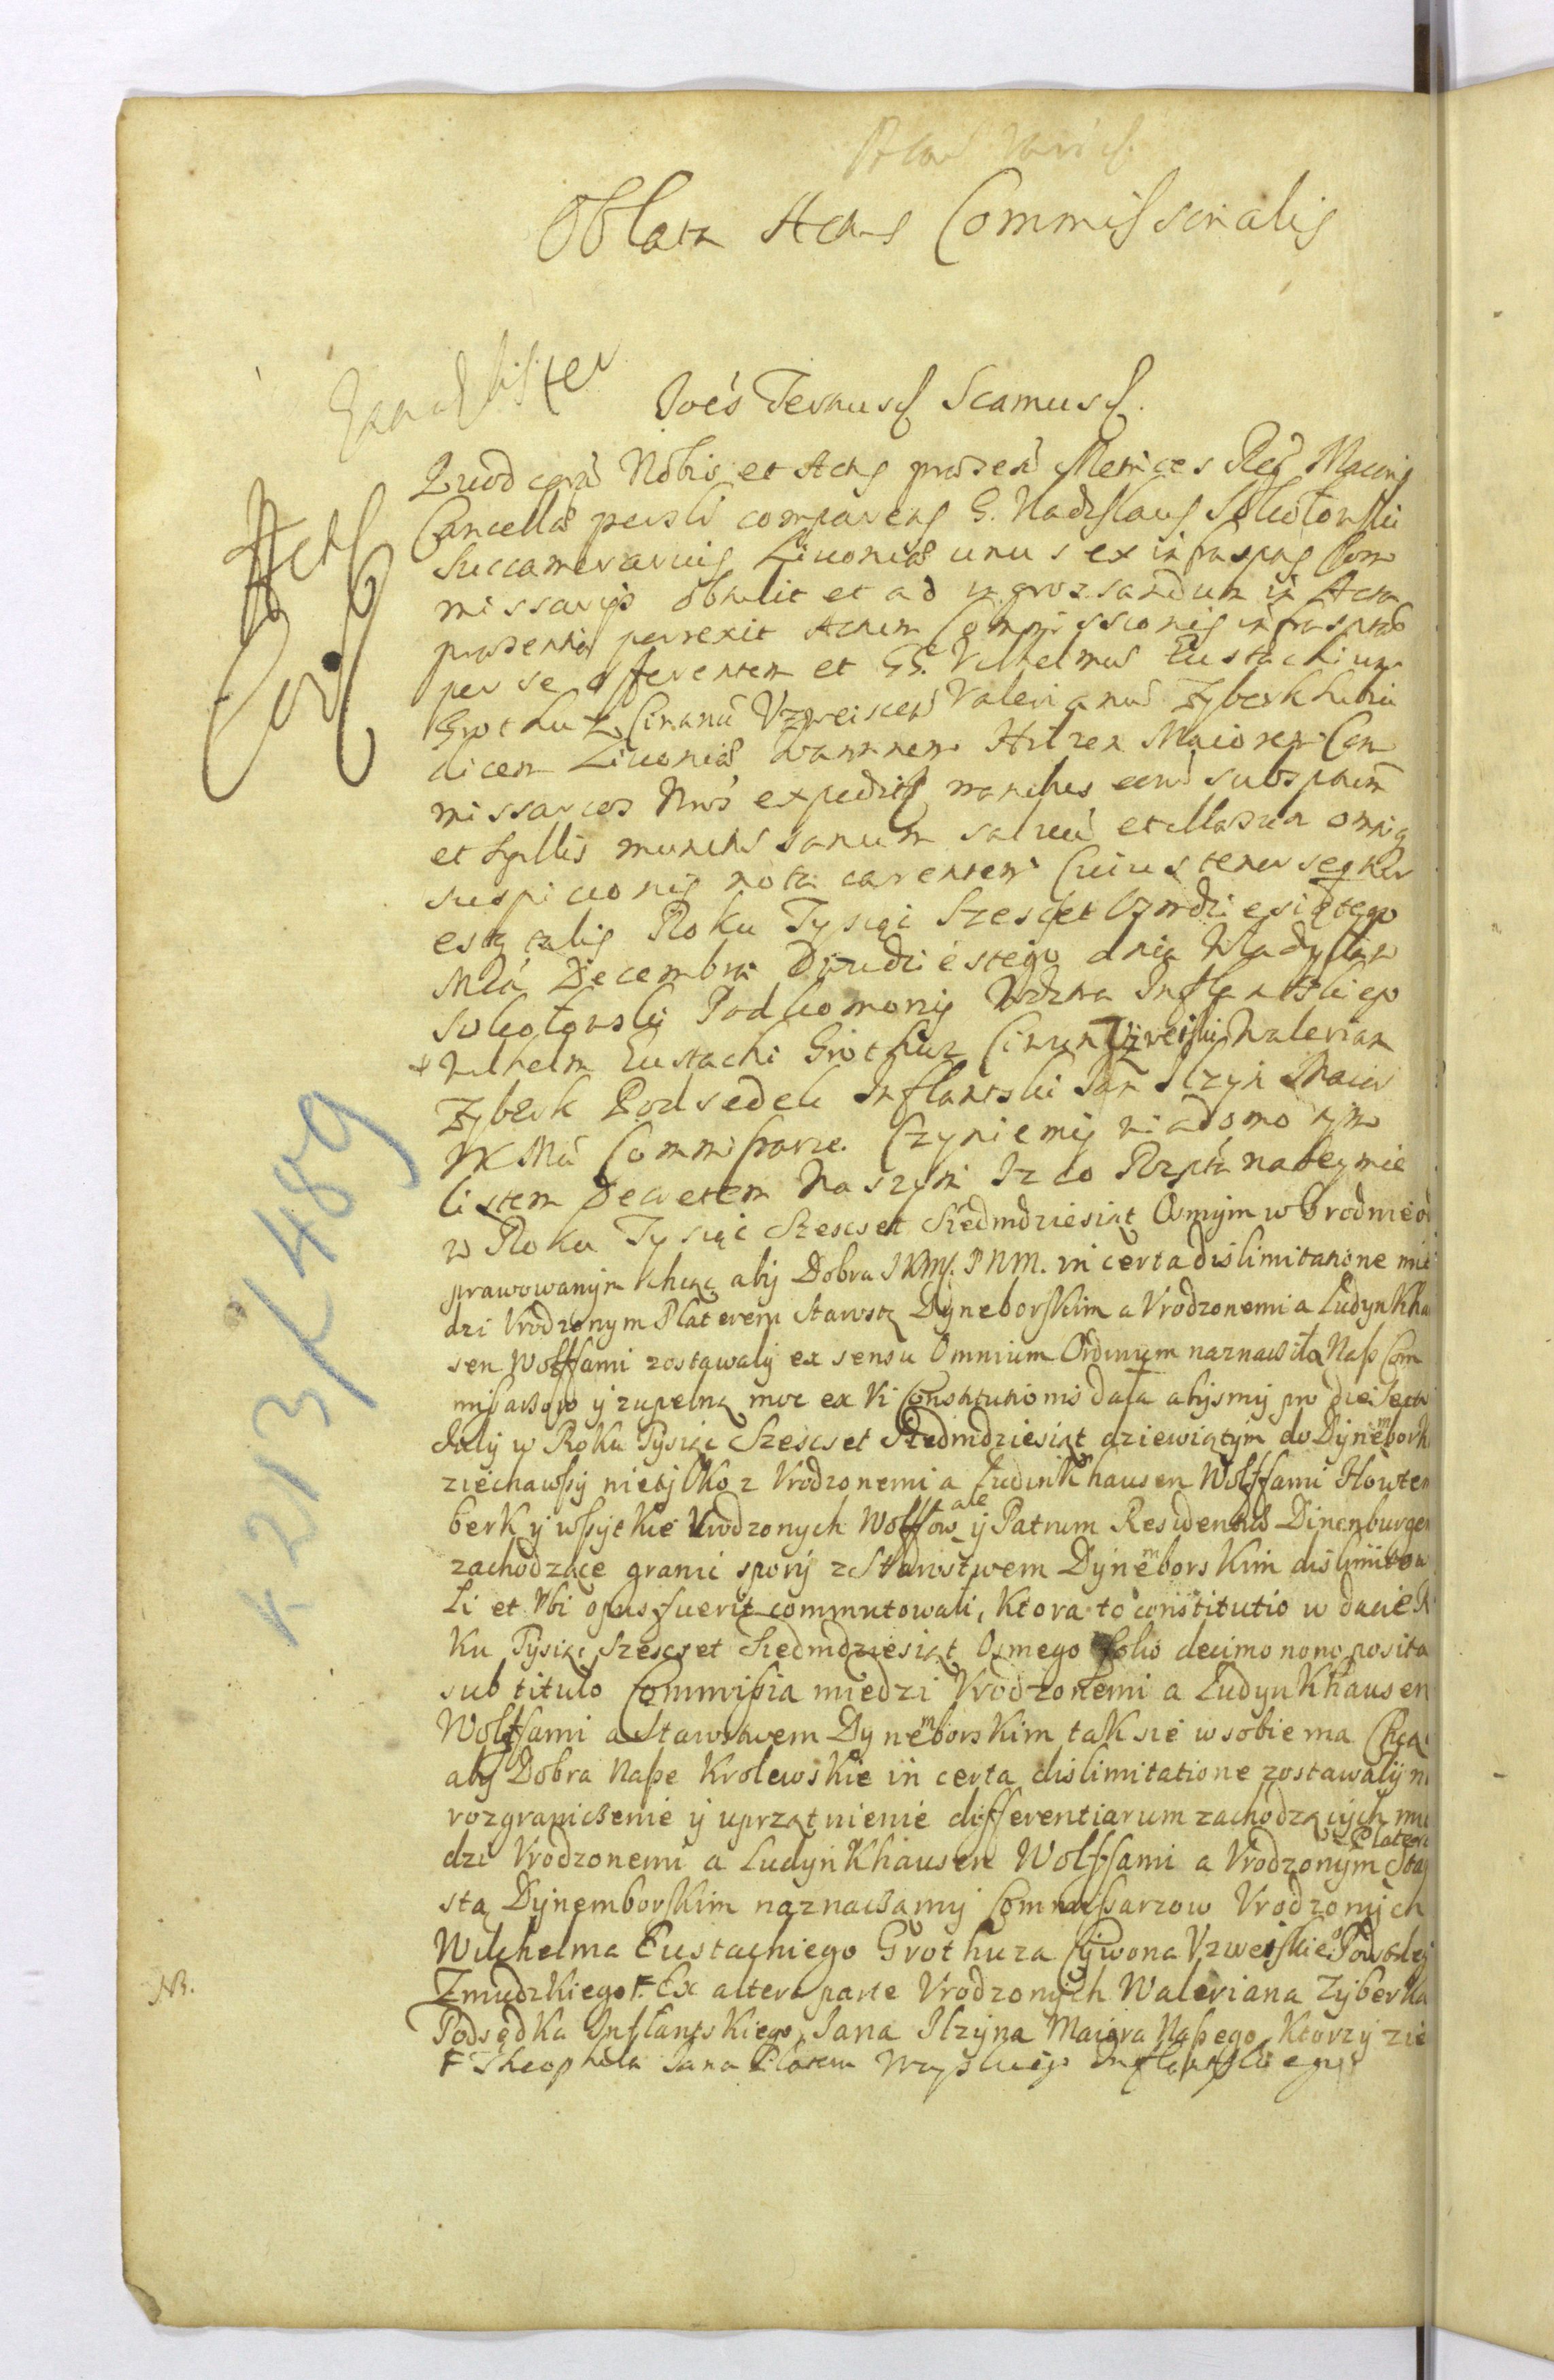 Oblata Actus Commissionalis
Joēs Tertius etc. Scamus etc.
Quod corā Nobis et Actis prӕsen Metrices Regn Maioris
Cancellӕ persolr comparens G. Vladislaus Sokołowski
Succamerarius Livoniӕ unus ex infraspns Com
missarijs obtulit et ad ingrossandum in Acta
prӕsentia porrexit Actum Commissionis infrasprӕ
per se offerentem et GG. Vilhelmus Eustachium
Grothuz Civonū Uzweiscen Valerianū Zyberk Iudi
dicem Livoniӕ Ioannem Ilrzen Maiorem Com
missarios Nros expedits manibus eorū subspriū
et sigillis munitū sanum salvū et illӕsum omniq
suspicionis nota carentem Cuius tenor seqtur
estq talis Roku Tysiąc Szescset Osmdziesiątego
Mca Decembra Dwudziestego dnia Władysław
Sokołowski Podkomorzy Wdztwa Inflantskiego
Wilhelm Eustachi Grothuz Ciwun Uzweiski Walerian
Zyberk Podsedek Inflantski Jan Ilrzyn Maior
JKMci Commissarze. Czyniemy wiadomo tym
listem Decretem Naszym Iz co Rzptā na Seymie
w Roku Tysiąc Szescset Siedmdziesiąt Osmym w Grodnie od
prawowanym chcąc aby Dobra JKMsci PNM. in certa dislimitatione mie
dzi Vrodzonym Platerem Starostą Dyneborskim a Vrodzonemi a Ludynkha
sen Wolffami zostawały ex sensu Omnium Ordinum naznaczyła Nas Com
missarzow y zupełną moc ex vi Constitutionis dała abysmy pro die
w Roku Tysiąc Szescset Siedmdziesiąt dziewiątym do Dynemborku
ziechawszy nietylko z Vrodzonemi a Ludinkhausen Wolffami Howten
berk y wszytkie Vrodzonych Wolffow ale y Patrum Residentiӕ Dinenburgen
zachodzące granic spory z Starostwem Dynemborskim dislimitowa
li et Vbi opus fuerit commutowali, Ktora to constitutio w dacie R
ku Tysiąc Szescset Siedmdziesiąt Osmego folio decimo nono posita
sub titulo Commissia miedzi Vrodzonemi a Ludynkhausen
Wolffami a Starostwem Dynemborskim tak sie w sobie ma Chcąc
aby Dobra Nasze Krolewskie in certa dislimitatione zostawały n
rozgraniczenie y uprzątnienie differentiarum zachodzących mie
dzi Vrodzonemi a Ludynkhausen Wolffami a Vrodzonym Platere Staro
stą Dynemborskim naznaczamy Commissarzow Vrodzonych
Wilhelma Eustachiego Grothuza Cywona Vzweiskieo Powodzi
Zmudzkiego F. Ex altera parte Vrodzonych Waleriana Zyberka
Podsędka Inflantskiego, Jana Ilzyna Maiora Naszego, Ktorzy zie
F Theophila Jana Platera Woyskiego Inflantskiego
NB.
K 213/489